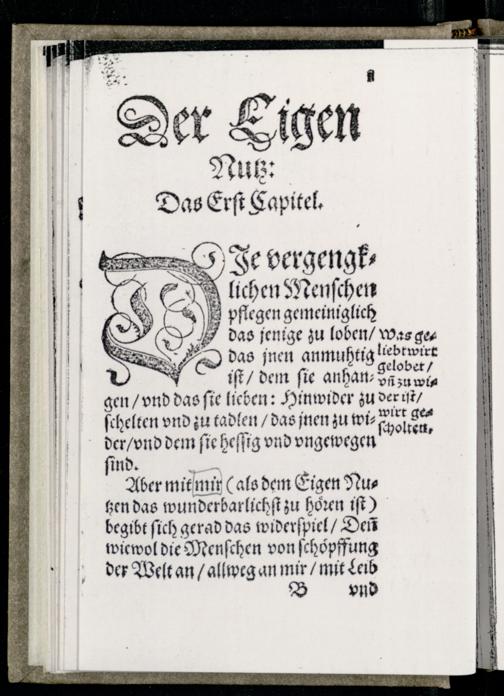 Der Eigen
Nutz:
Das Erst Capitel.
DIe vergengk⸗
lichen Menschen
pflegen gemeiniglich
das jenige zu loben/
das jnen anmuhtig
ist/ dem sie anhan⸗
gen/ vnd das sie lieben: Hinwider zu
schelten vnd zu tadlen/ das jnen zu wi⸗
der/ vnd dem sie hessig vnd vngewegen
sind.
Was ge⸗
liebt wirt
gelobet/
vñ zu wi⸗
der ist/
wirt ge⸗
scholten.
Aber mit mir (als dem Eigen Nu⸗
tzen das wunderbarlichst zu hören ist)
begibt sich gerad das widerspiel/ Deñ
wiewol die Menschen von schöpffung
der Welt an/ allweg an mir/ mit Leib
B vnd